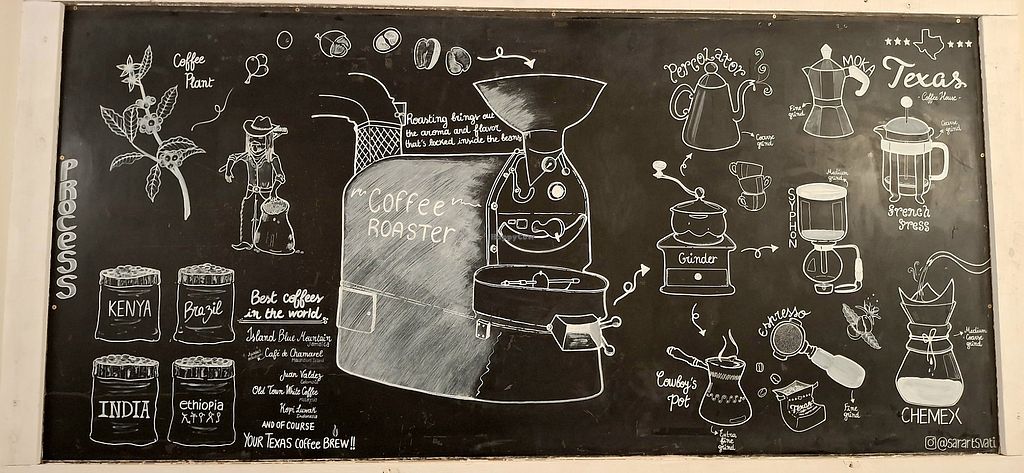 PROCESS
Coffee
Plant
KENYA
Brazil
INDIA
ethiopia
Best coffees
in the world
Island Blue Mountain
Jamaica
Café de Chamarel
Juan Valdez
Colombia
Old Town White Coffee
Malaysia
Kopi Luwak
Indonesia
AND OF COURSE
YOUR TEXAS COFFEE BREW!!
Roasting brings out
the aroma and flavor
that's locked inside the beans
Coffee
ROASTER
Percolator
Coarse
grind
MOKA
Fine
grind
Texas
- Coffee House -
Coarse
grind
French
Press
Grinder
SYPHON
Medium
grind
Cowboy's
Pot
Extra
fine
grind
espresso
Fine
grind
Texas
Medium
Coarse
grind
CHEMEX
@sarartsvati